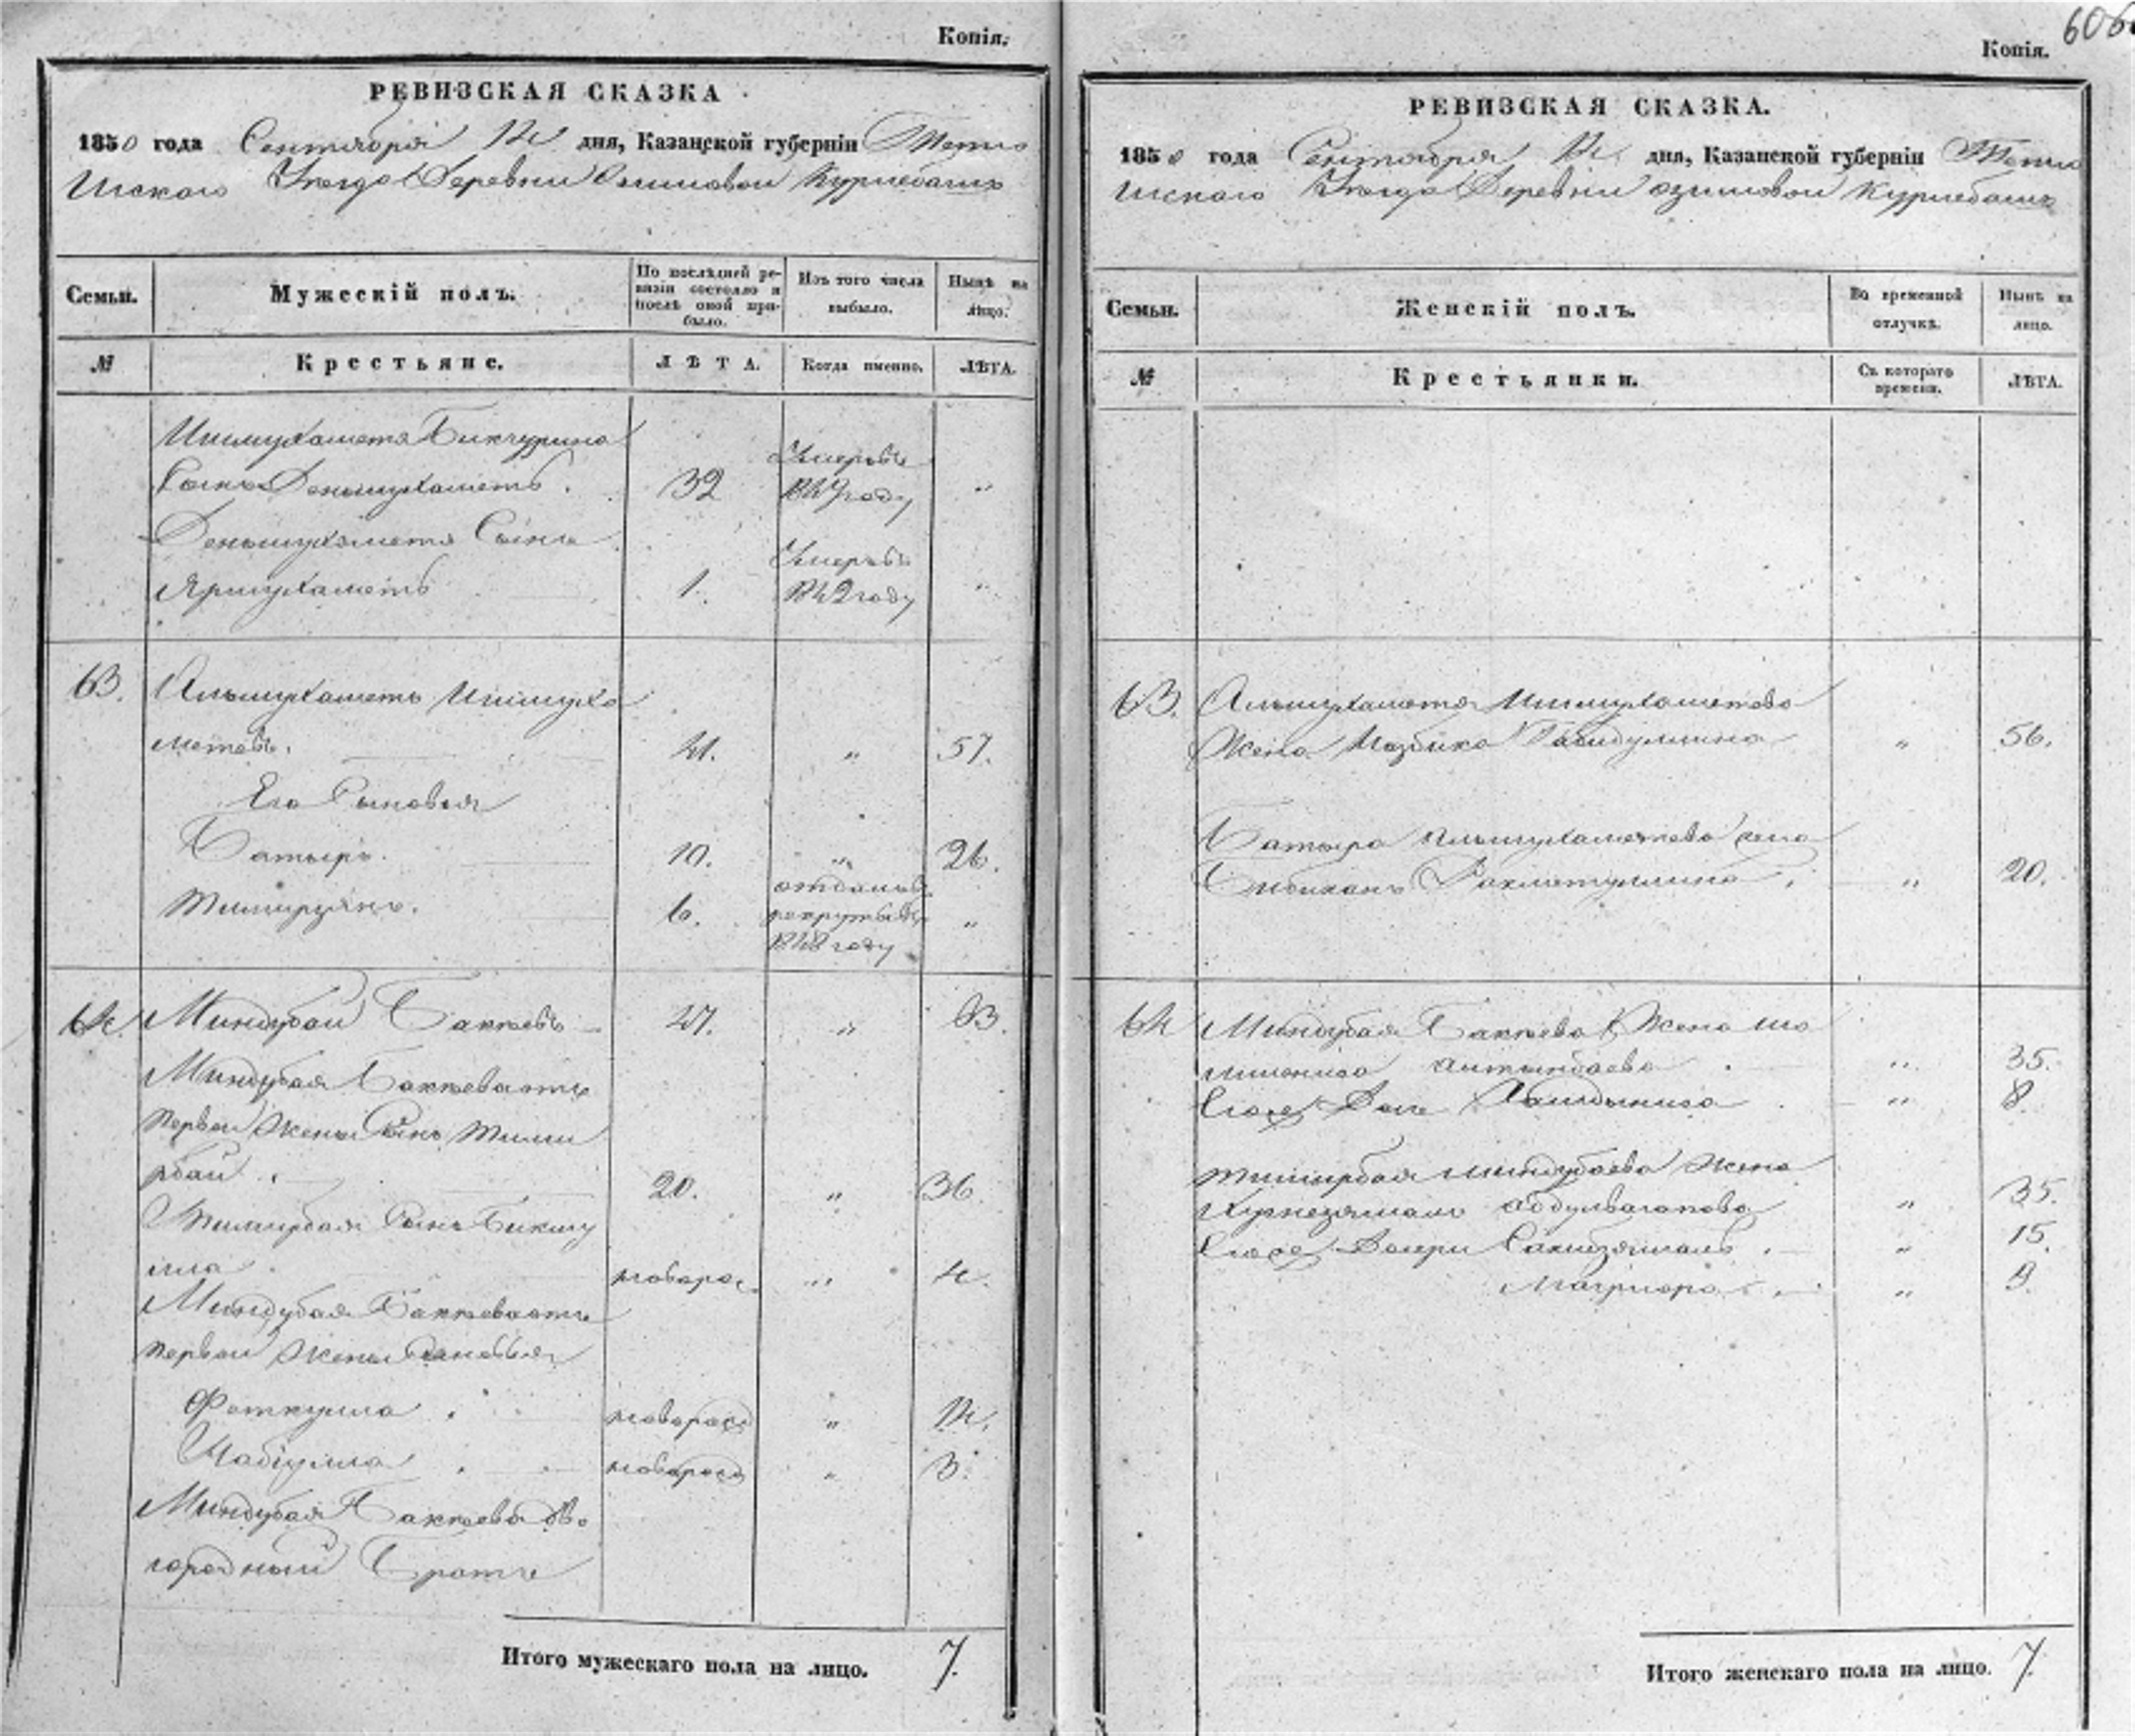 Копія.
РЕВИЗСКАЯ СКАЗКА
1850 года Сентября 14 дня, Казанской губерніи Тетю
шскаго Уезда Деревни Курмебашъ
Семьи. Мужескій полъ. По послѣдней ревизіи состояло и послѣ оной прибыло. Изъ того числа выбыло. Нынѣ на лицо.
№ Крестьяне. ЛѢТА. Когда именно. ЛѢТА.
Ишмухаметя Бикчурина
Сынъ Деньмухаметъ. 32 Умеръ въ 1849 году „
Деньмухаметя Сынъ
Ярмухаметъ 1. Умеръ въ 1842 году „
63. Альмухаметъ Ишмуха
метевъ. 41. „ 57.
Его Сыновья
Батыръ. 10. „ 26.
Тимирзянъ. 6. отданъ въ рекруты въ 1848 году „
64. Миндубай Бакѣевъ 47. „ 63.
Миндубая Бакѣева отъ
первой жены Сынъ Тими
рбай. 20. „ 36.
Тимирбая Сынъ Бикму
лла. новорож. „ 4.
Миндубая Бакѣева отъ
первой жены Сыновья
Фаткулла. новорож „ 14.
Набіулла новорож „ 3.
Миндубая Бакѣева дво
юродный Братъ
Итого мужескаго пола на лицо. 7.
606
Копія.
РЕВИЗСКАЯ СКАЗКА.
1850 года Сентября 14 дня, Казанской губерніи Тетю
шскаго Уезда Деревни Курмебашъ
Семьи. Женскій полъ. Во временной отлучкѣ. Нынѣ на лицо.
№ Крестьянки. Съ котораго времени. ЛѢТА.
63. Альмухаметя Ишмухаметева
Жена „ 56.
Батыра Альмухаметева жена
Бибиканъ Рахматуллина. „ 20.
64 Миндубая Бакѣева Жена
„ 35.
„ 8.
Тимирбая Миндубаева Жена
Абдулвагапова „ 35.
Дочери „ 15.
„ 9.
Итого женскаго пола на лицо. 7.